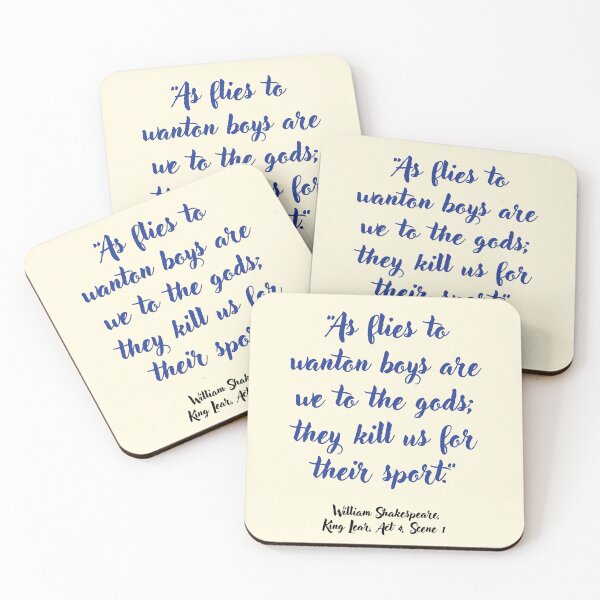 "As flies to
wanton boys are
we to the gods;
they kill us for
"As flies to
wanton boys are
we to the gods;
they kill us for
their sport."
"As flies to
wanton boys are
we to the gods;
they kill us for
their sport
William
King Lear, Act
"As flies to
wanton boys are
we to the gods;
they kill us for
their sport."
William Shakespeare,
King Lear, Act 4, Scene 1